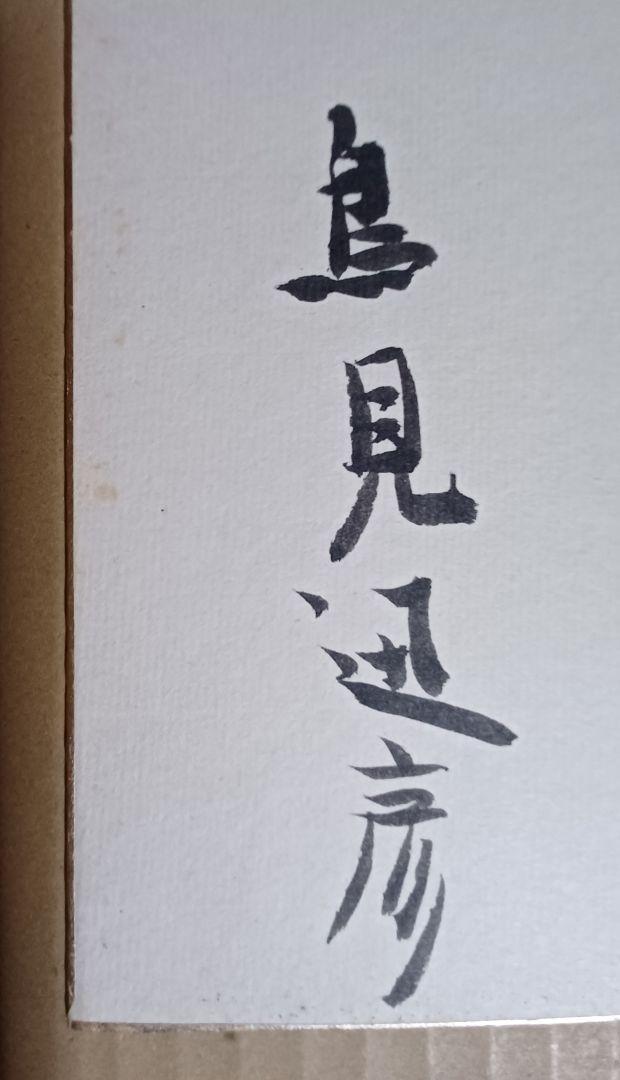 鳥見迅彦